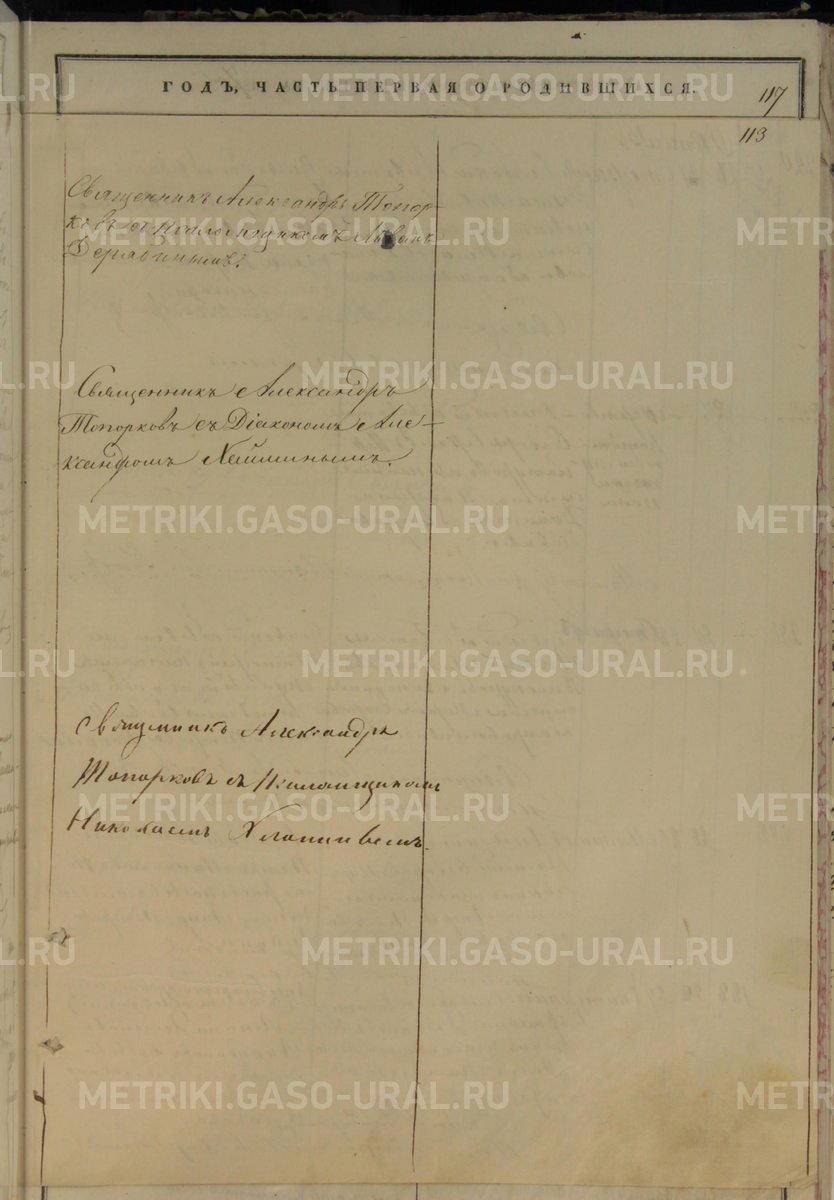 ГОДЪ, ЧАСТЬ ПЕРВАЯ О РОДИВШИХСЯ.
117
113
Священникъ Александръ Топор-
ковъ съ Псаломщикомъ
Дерябинымъ.
Священникъ Александръ
Топорковъ съ Діакономъ Але-
ксандромъ Хайминымъ.
Священникъ Александръ
Топорковъ съ Псаломщикомъ
Николаемъ
METRIKI.GASO-URAL.RU